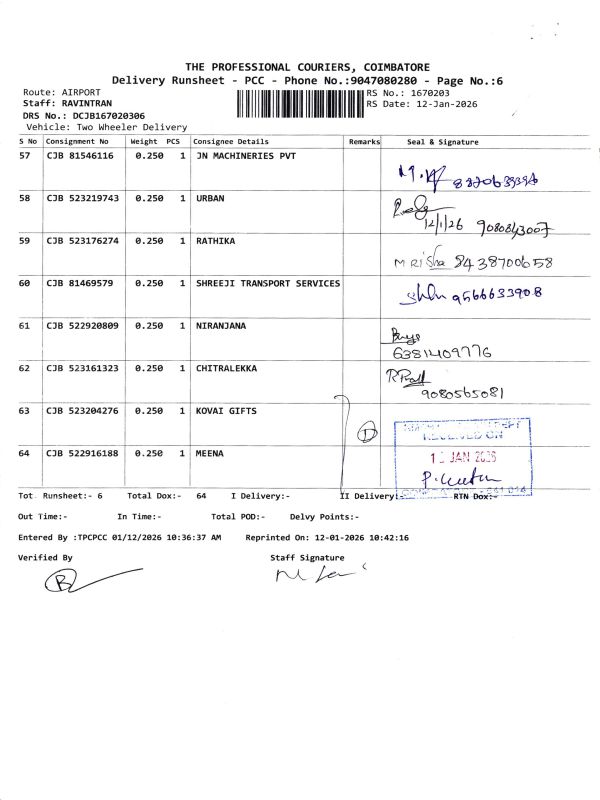 THE PROFESSIONAL COURIERS, COIMBATORE
Delivery Runsheet - PCC - Phone No.:9047080280 - Page No.:6
Route: AIRPORT
RS No.: 1670203
Staff: RAVINTRAN
RS Date: 12-Jan-2026
DRS No.: DCJB167020306
Vehicle: Two Wheeler Delivery
S No Consignment No Weight PCS Consignee Details Remarks Seal & Signature
57 CJB 81546116 0.250 1 JN MACHINERIES PVT
58 CJB 523219743 0.250 1 URBAN
12/1/26 9080843007
59 CJB 523176274 0.250 1 RATHIKA
MRisha 8438700658
60 CJB 81469579 0.250 1 SHREEJI TRANSPORT SERVICES
9566633908
61 CJB 522920809 0.250 1 NIRANJANA
6381409776
62 CJB 523161323 0.250 1 CHITRALEKKA
9080565081
63 CJB 523204276 0.250 1 KOVAI GIFTS
RECEIVED ON
64 CJB 522916188 0.250 1 MEENA
JAN 2026
Tot Runsheet:- 6 Total Dox:- 64 I Delivery:- II Delivery:- RTN Dox:-
Out Time:- In Time:- Total POD:- Delvy Points:-
Entered By :TPCPCC 01/12/2026 10:36:37 AM Reprinted On: 12-01-2026 10:42:16
Verified By Staff Signature